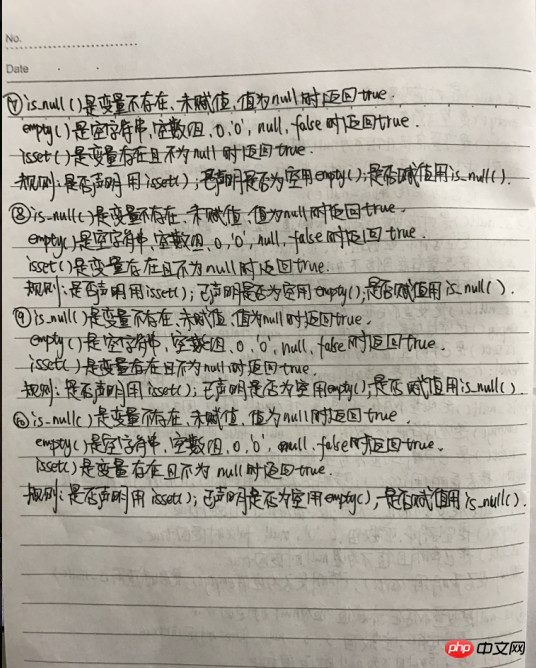 No.
Date
⑦ is_null()是变量不存在、未赋值、值为null时返回true.
empty()是空字符串,空数组,0,'0',null,false时返回true.
isset()是变量存在且不为null时返回true.
规则:是否声明用isset();已声明是否为空用empty();是否赋值用is_null().
⑧ is_null()是变量不存在、未赋值、值为null时返回true.
empty()是空字符串,空数组,0,'0',null,false时返回true.
isset()是变量存在且不为null时返回true.
规则:是否声明用isset();已声明是否为空用empty();是否赋值用is_null().
⑨ is_null()是变量不存在、未赋值、值为null时返回true.
empty()是空字符串,空数组,0,'0',null,false时返回true.
isset()是变量存在且不为null时返回true.
规则:是否声明用isset();已声明是否为空用empty();是否赋值用is_null().
⑩ is_null()是变量不存在、未赋值、值为null时返回true.
empty()是空字符串,空数组,0,'0',null,false时返回true.
isset()是变量存在且不为null时返回true.
规则:是否声明用isset();已声明是否为空用empty();是否赋值用is_null().
php 中文网